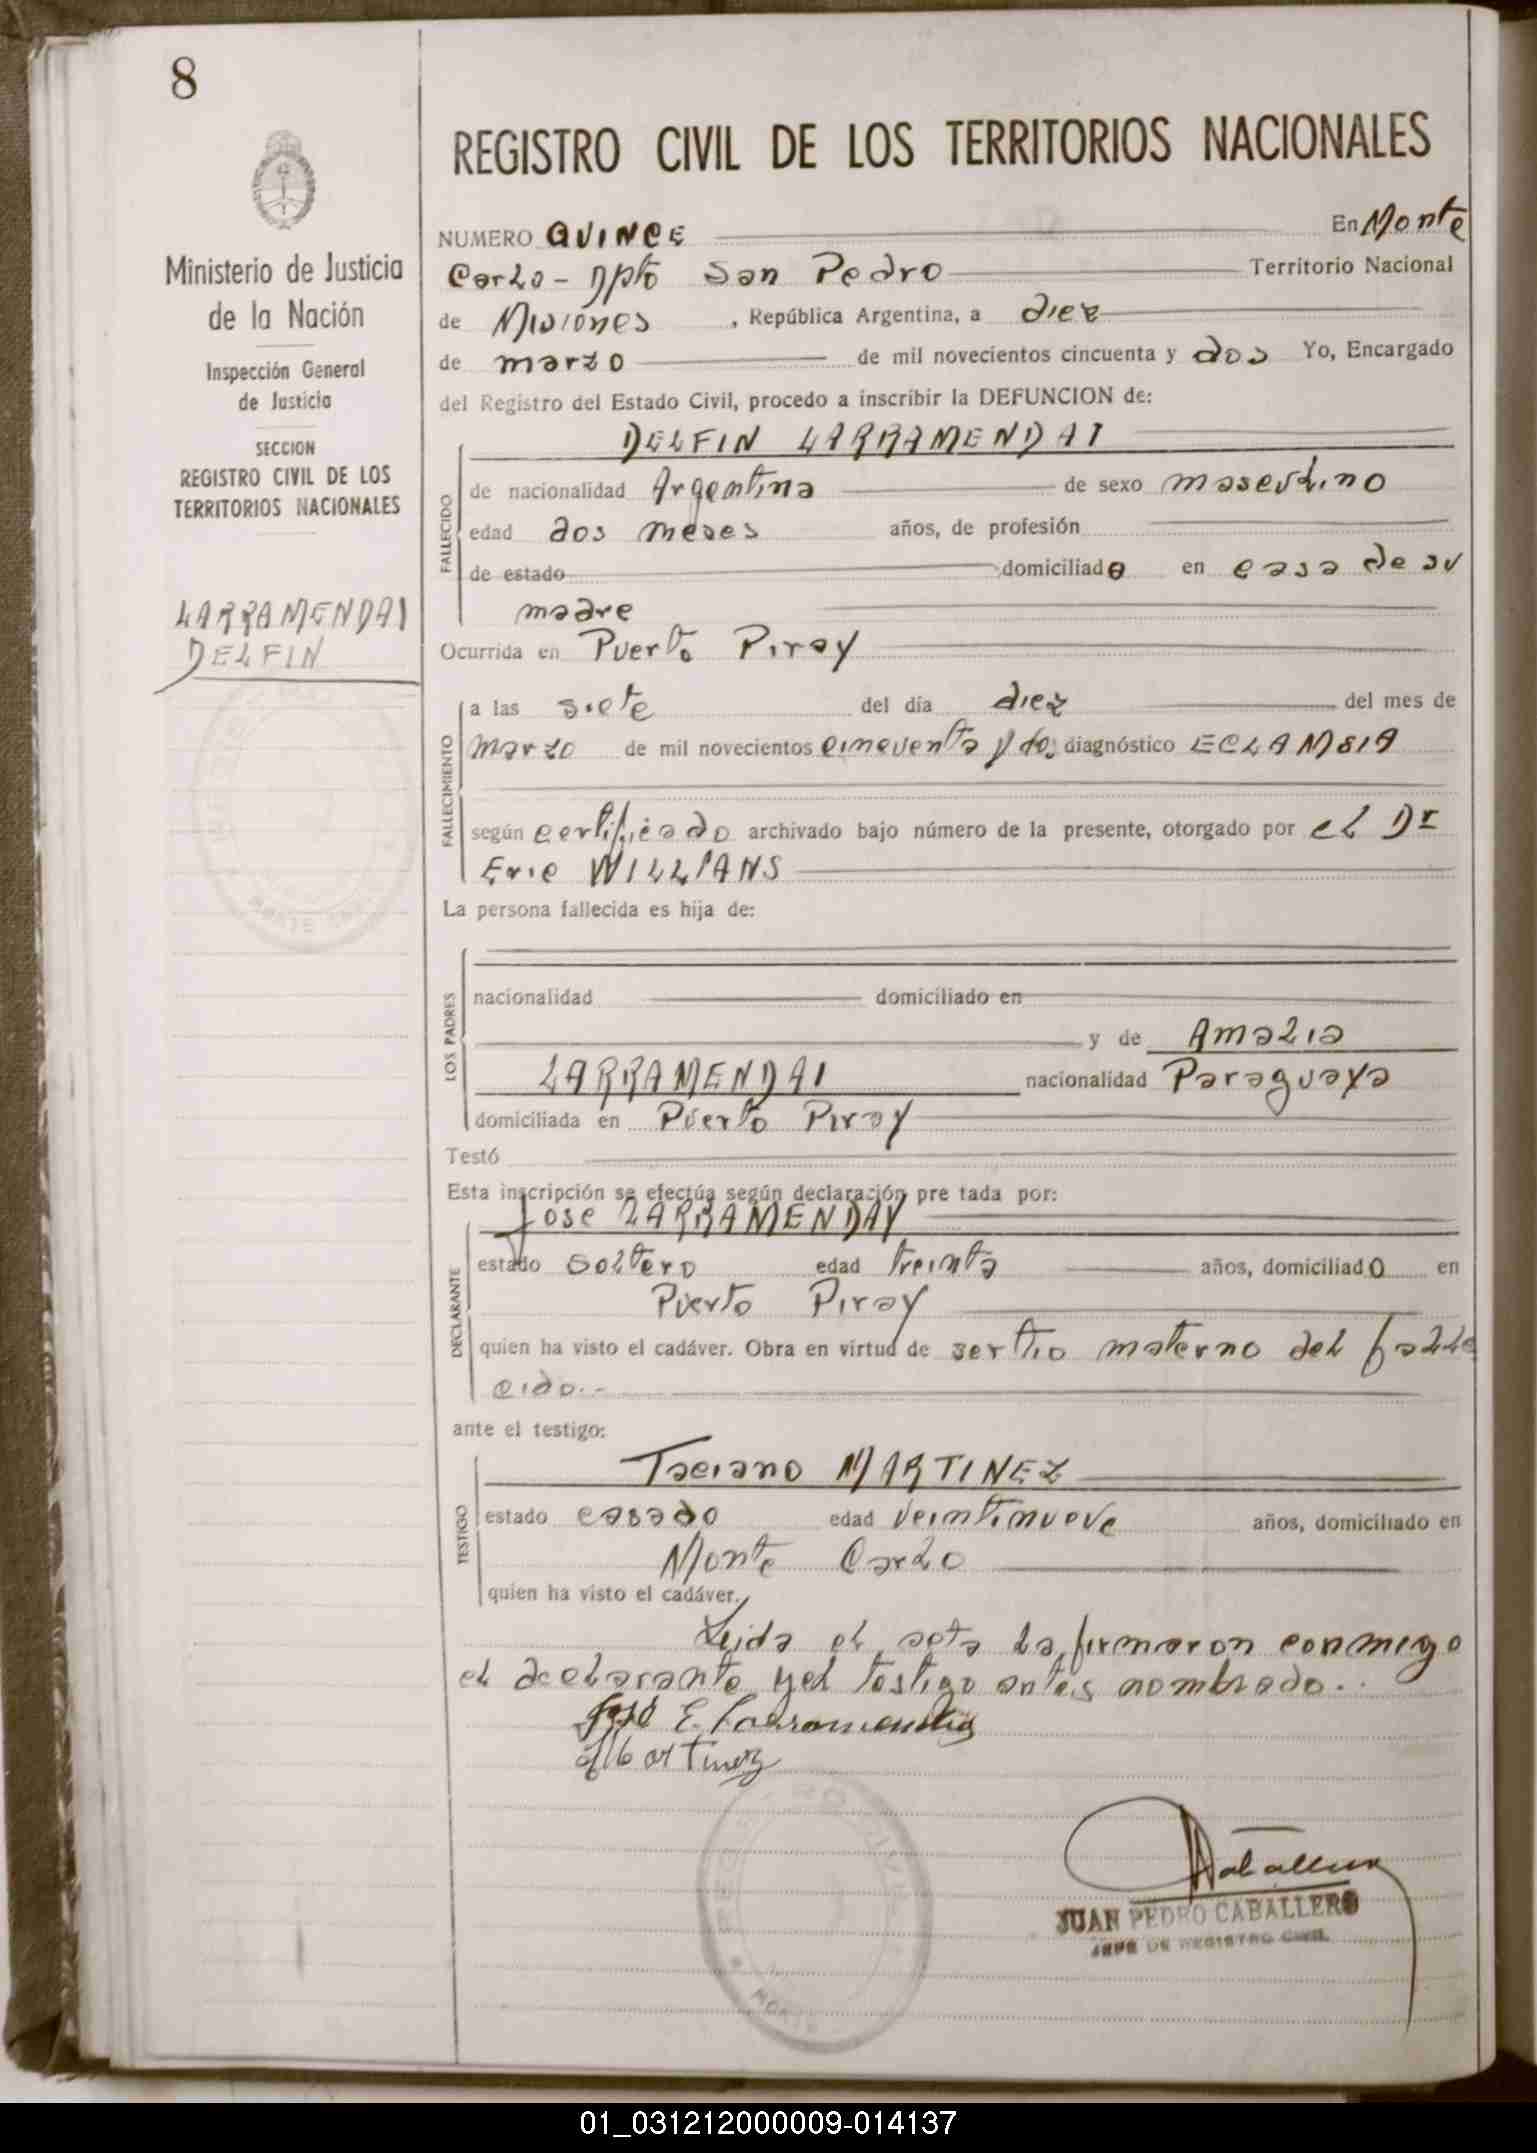 8
REGISTRO CIVIL DE LOS TERRITORIOS NACIONALES
Ministerio de Justicia
de la Nación
Inspección General
de Justicia
SECCION
REGISTRO CIVIL DE LOS
TERRITORIOS NACIONALES
LARRAMENDAI
DELFIN
NUMERO QUINCE En Monte
Carlo - Dpto San Pedro Territorio Nacional
de Misiones , República Argentina, a diez
de marzo de mil novecientos cincuenta y dos Yo, Encargado
del Registro del Estado Civil, procedo a inscribir la DEFUNCION de:
DELFIN LARRAMENDAI
FALLECIDO
de nacionalidad Argentina de sexo masculino
edad dos meses años, de profesión
de estado domiciliado en casa de su
madre
Ocurrida en Puerto Piray
FALLECIMIENTO
a las siete del día diez del mes de
marzo de mil novecientos cincuenta y do. diagnóstico ECLAMSIA
según certificado archivado bajo número de la presente, otorgado por el Dr
Eric WILLIANS
La persona fallecida es hija de:
LOS PADRES
nacionalidad domiciliado en
y de Amalia
LARRAMENDAI nacionalidad Paraguaya
domiciliada en Puerto Piray
Testó
Esta inscripción se efectúa según declaración pre tada por:
Jose LARRAMENDAY
DECLARANTE
estado soltero edad treinta años, domiciliado en
Puerto Piray
quien ha visto el cadáver. Obra en virtud de ser tio materno del falle
cido.-
ante el testigo:
Taciano MARTINEZ
TESTIGO
estado casado edad veintinueve años, domiciliado en
Monte Carlo
quien ha visto el cadáver.
Leida el acta la firmaron conmigo
el declarante y el testigo antes nombrado..
José E. Larramendia
Martinez
Caballero
JUAN PEDRO CABALLERO
JEFE DE REGISTRO CIVIL
01_031212000009-014137